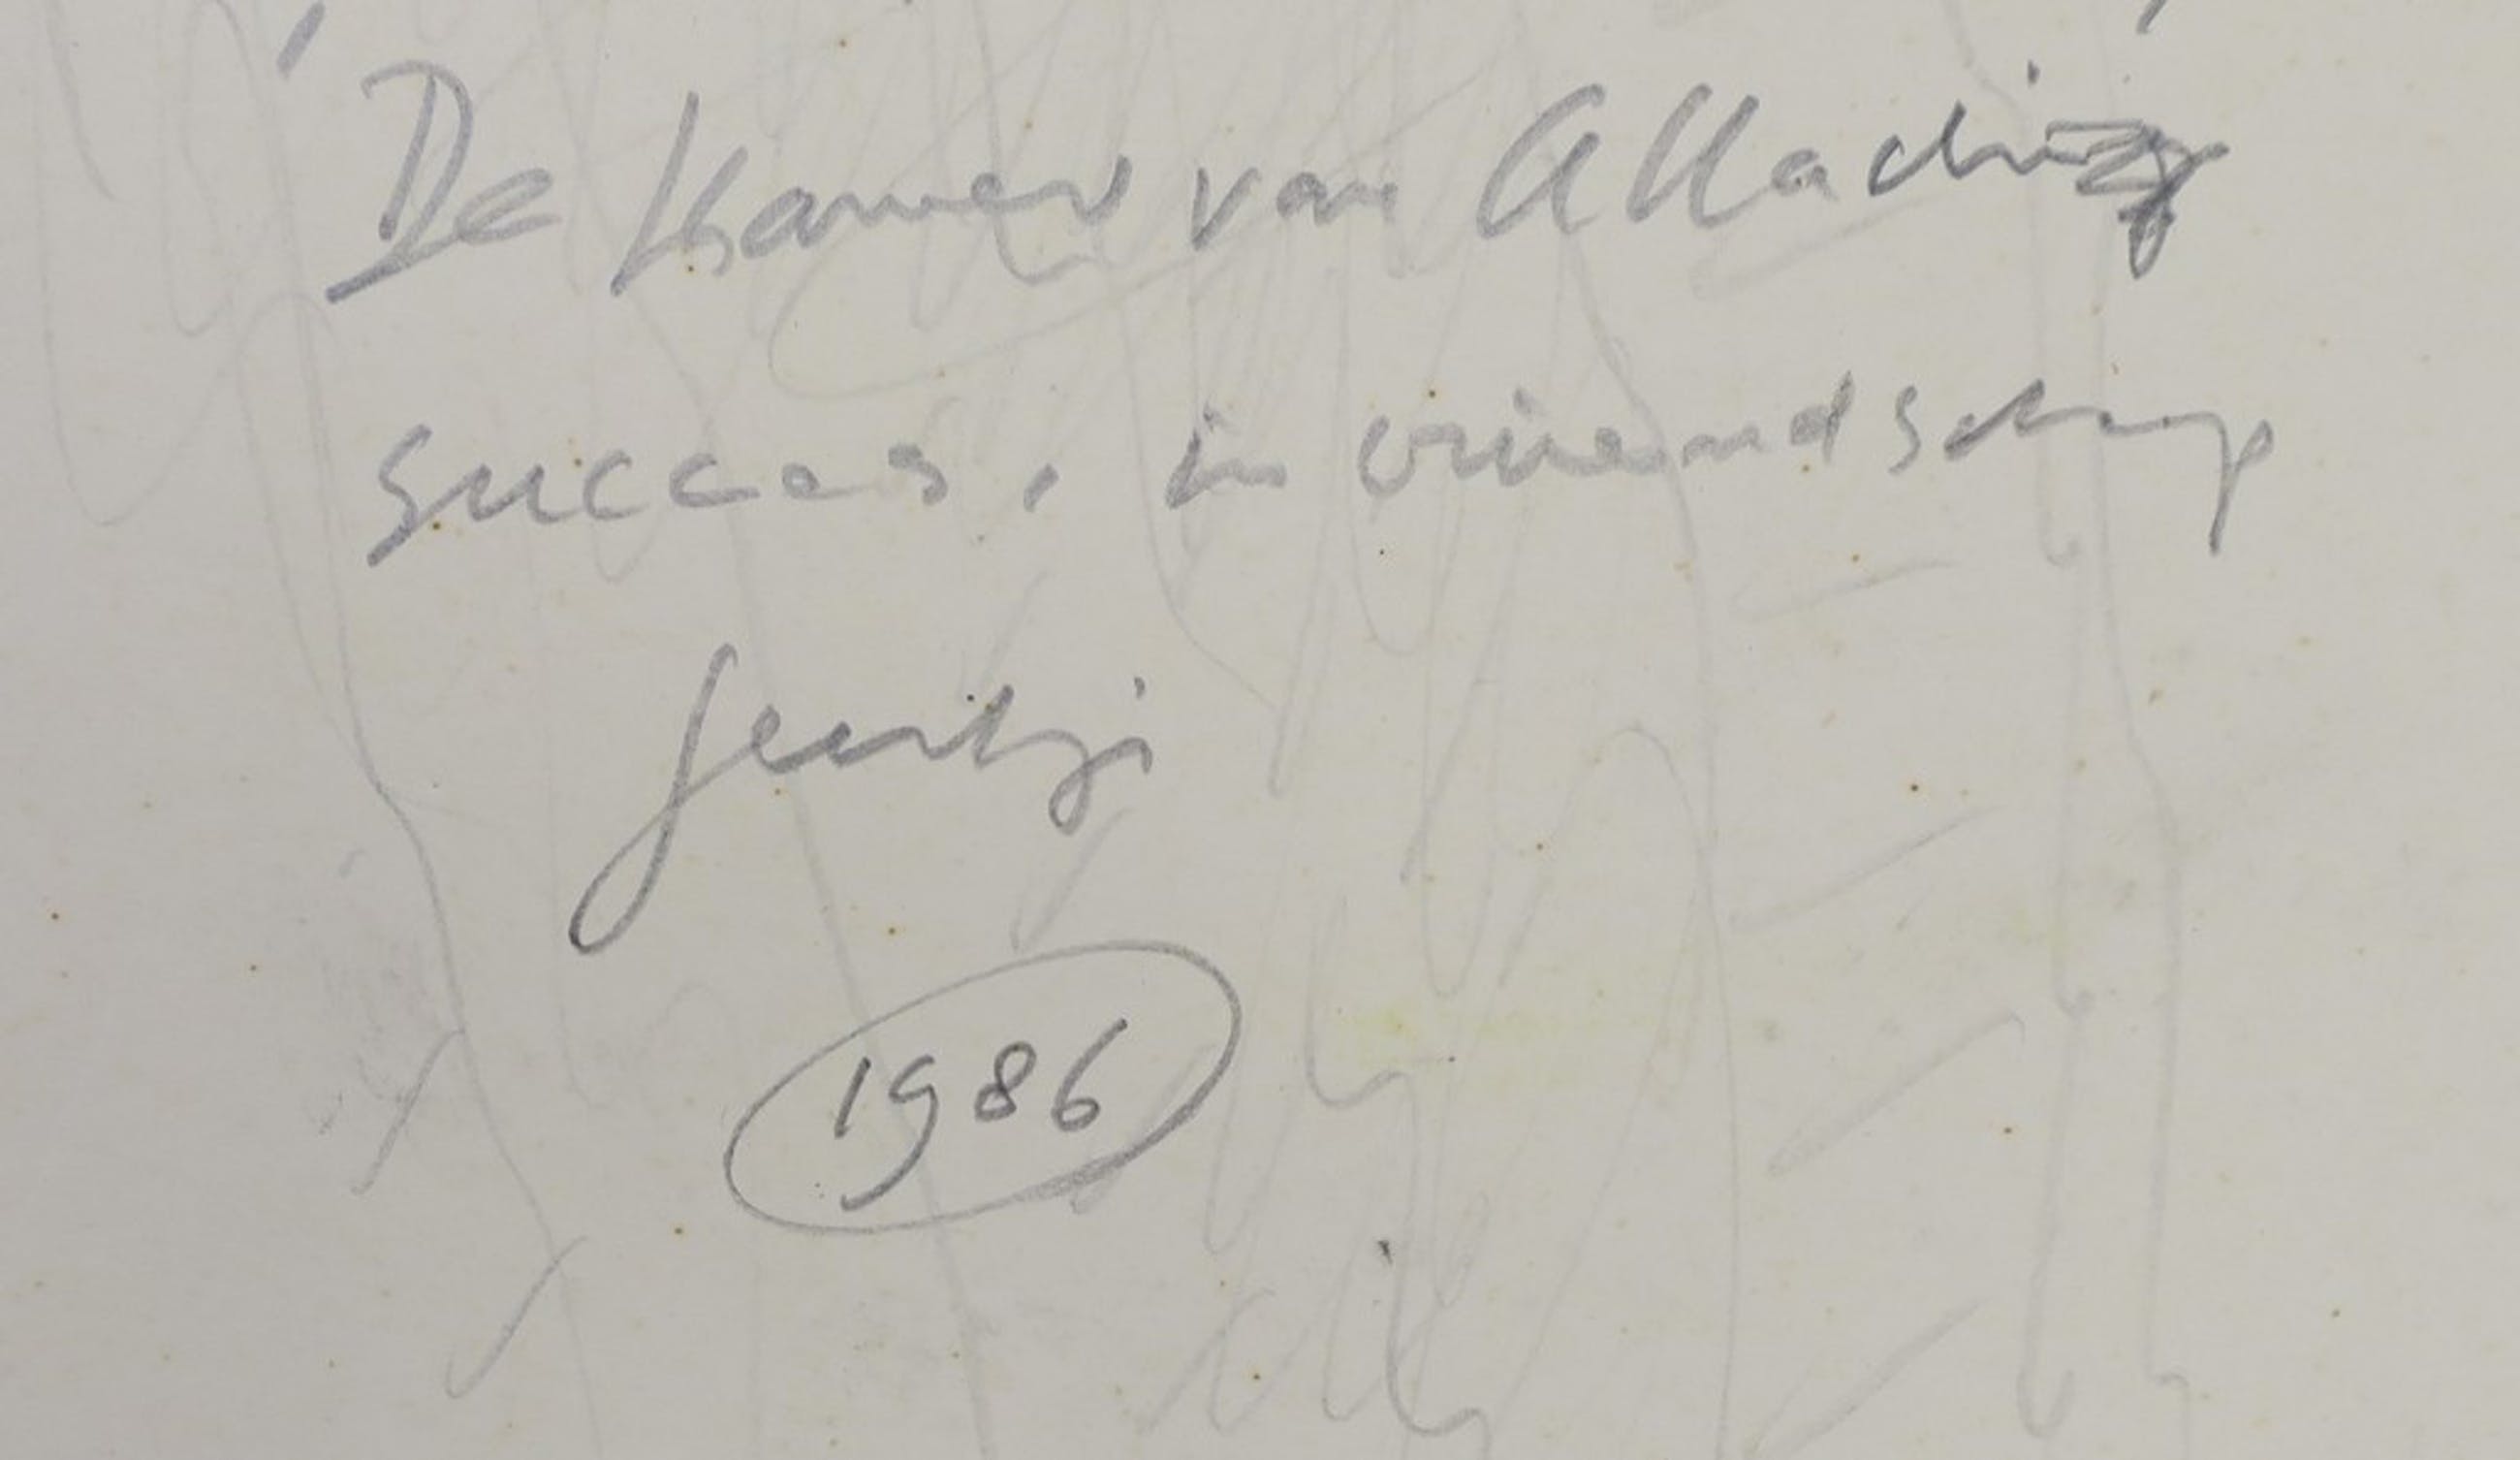 De Kamer van Alladin
succes, in vriendschap
Geertje
1986